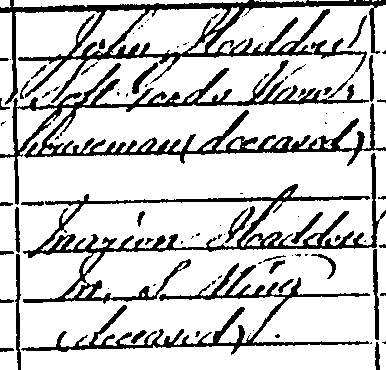 John Haddow
Soft Goods Ware
houseman (deceased)
Marion Haddow
M. S. King
(deceased)